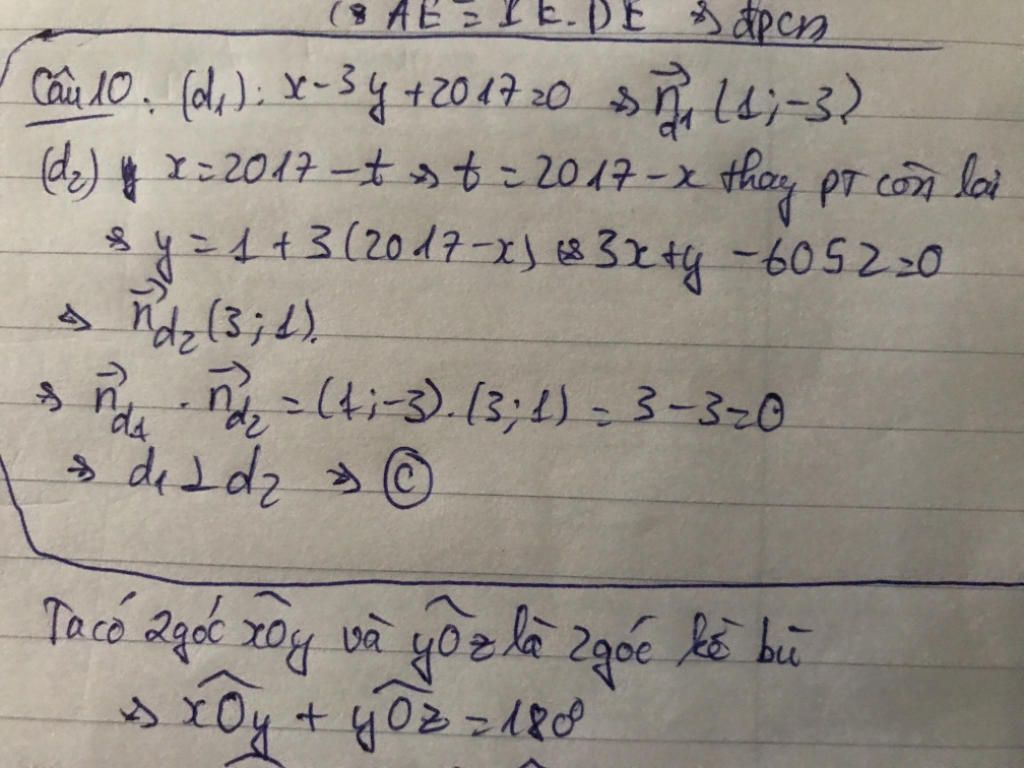 ⇔ AE² = IE.DE ⇒ đpcm
Câu 10 : (d₁) : x - 3y + 2017 = 0 ⇒ n⃗d₁ (1 ; -3)
(d₂) x = 2017 - t ⇒ t = 2017 - x thay PT còn lại
⇒ y = 1 + 3(2017 - x) ⇔ 3x + y - 6052 = 0
⇒ n⃗d₂ (3 ; 1).
⇒ n⃗d₁ . n⃗d₂ = (1 ; -3) . (3 ; 1) = 3 - 3 = 0
⇒ d₁ ⊥ d₂ ⇒ Ⓒ
Ta có 2 góc xÔy và yÔz là 2 góc kề bù
⇒ xÔy + yÔz = 180